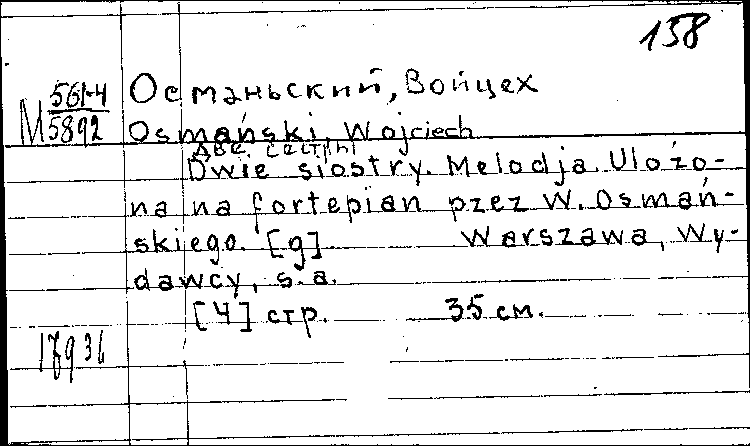 158
М 561-4
5892
Османьский, Войцех
Osmański, Wojciech
Две сестры
Dwie siostry. Melodja. Ułożo-
na na fortepian pzez W. Osmań-
skiego. [g] Warszawa, Wy-
dawcy, s.a.
[4] стр. 35 см.